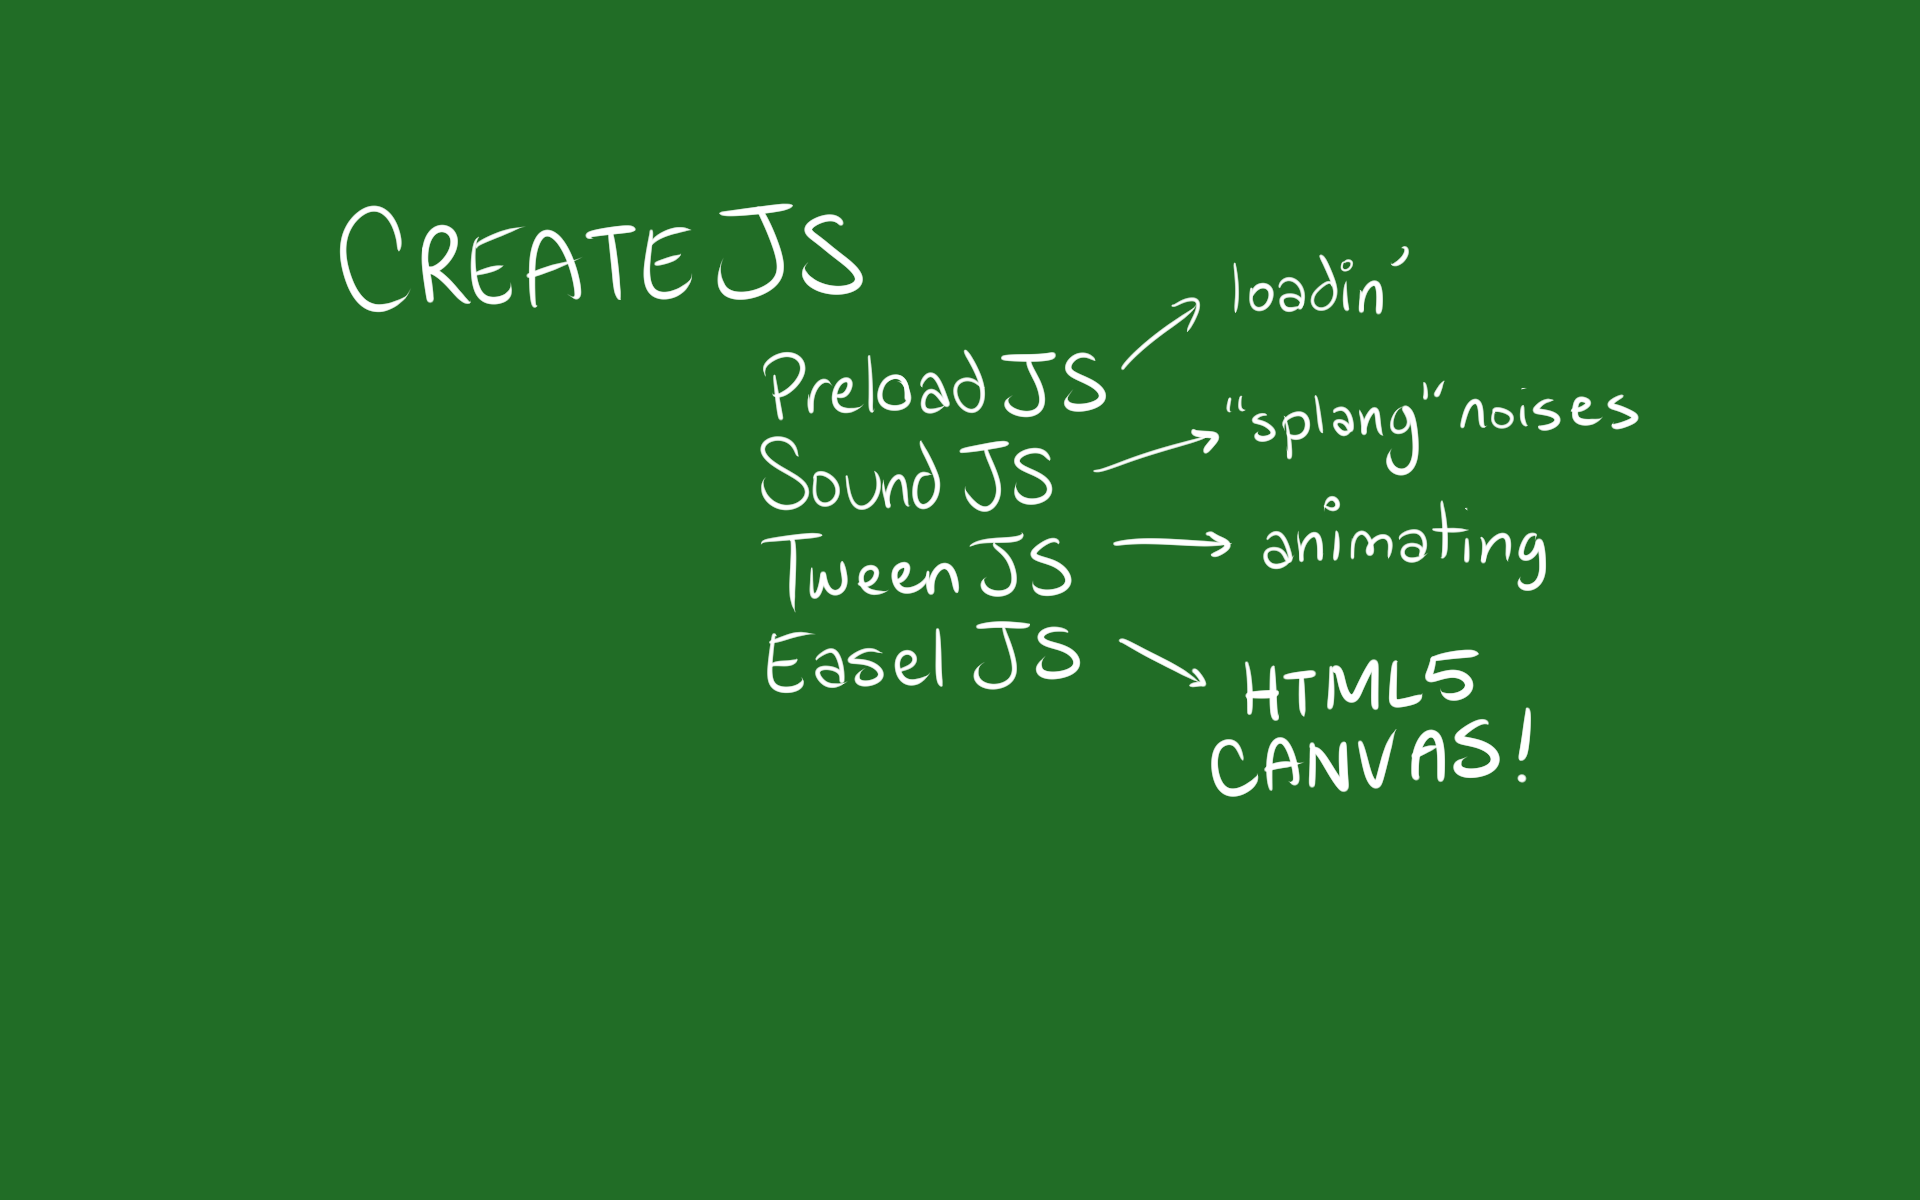 CREATEJS
PreloadJS → loadin’
SoundJS → “splang” noises
TweenJS → animating
EaselJS → HTML5
CANVAS!